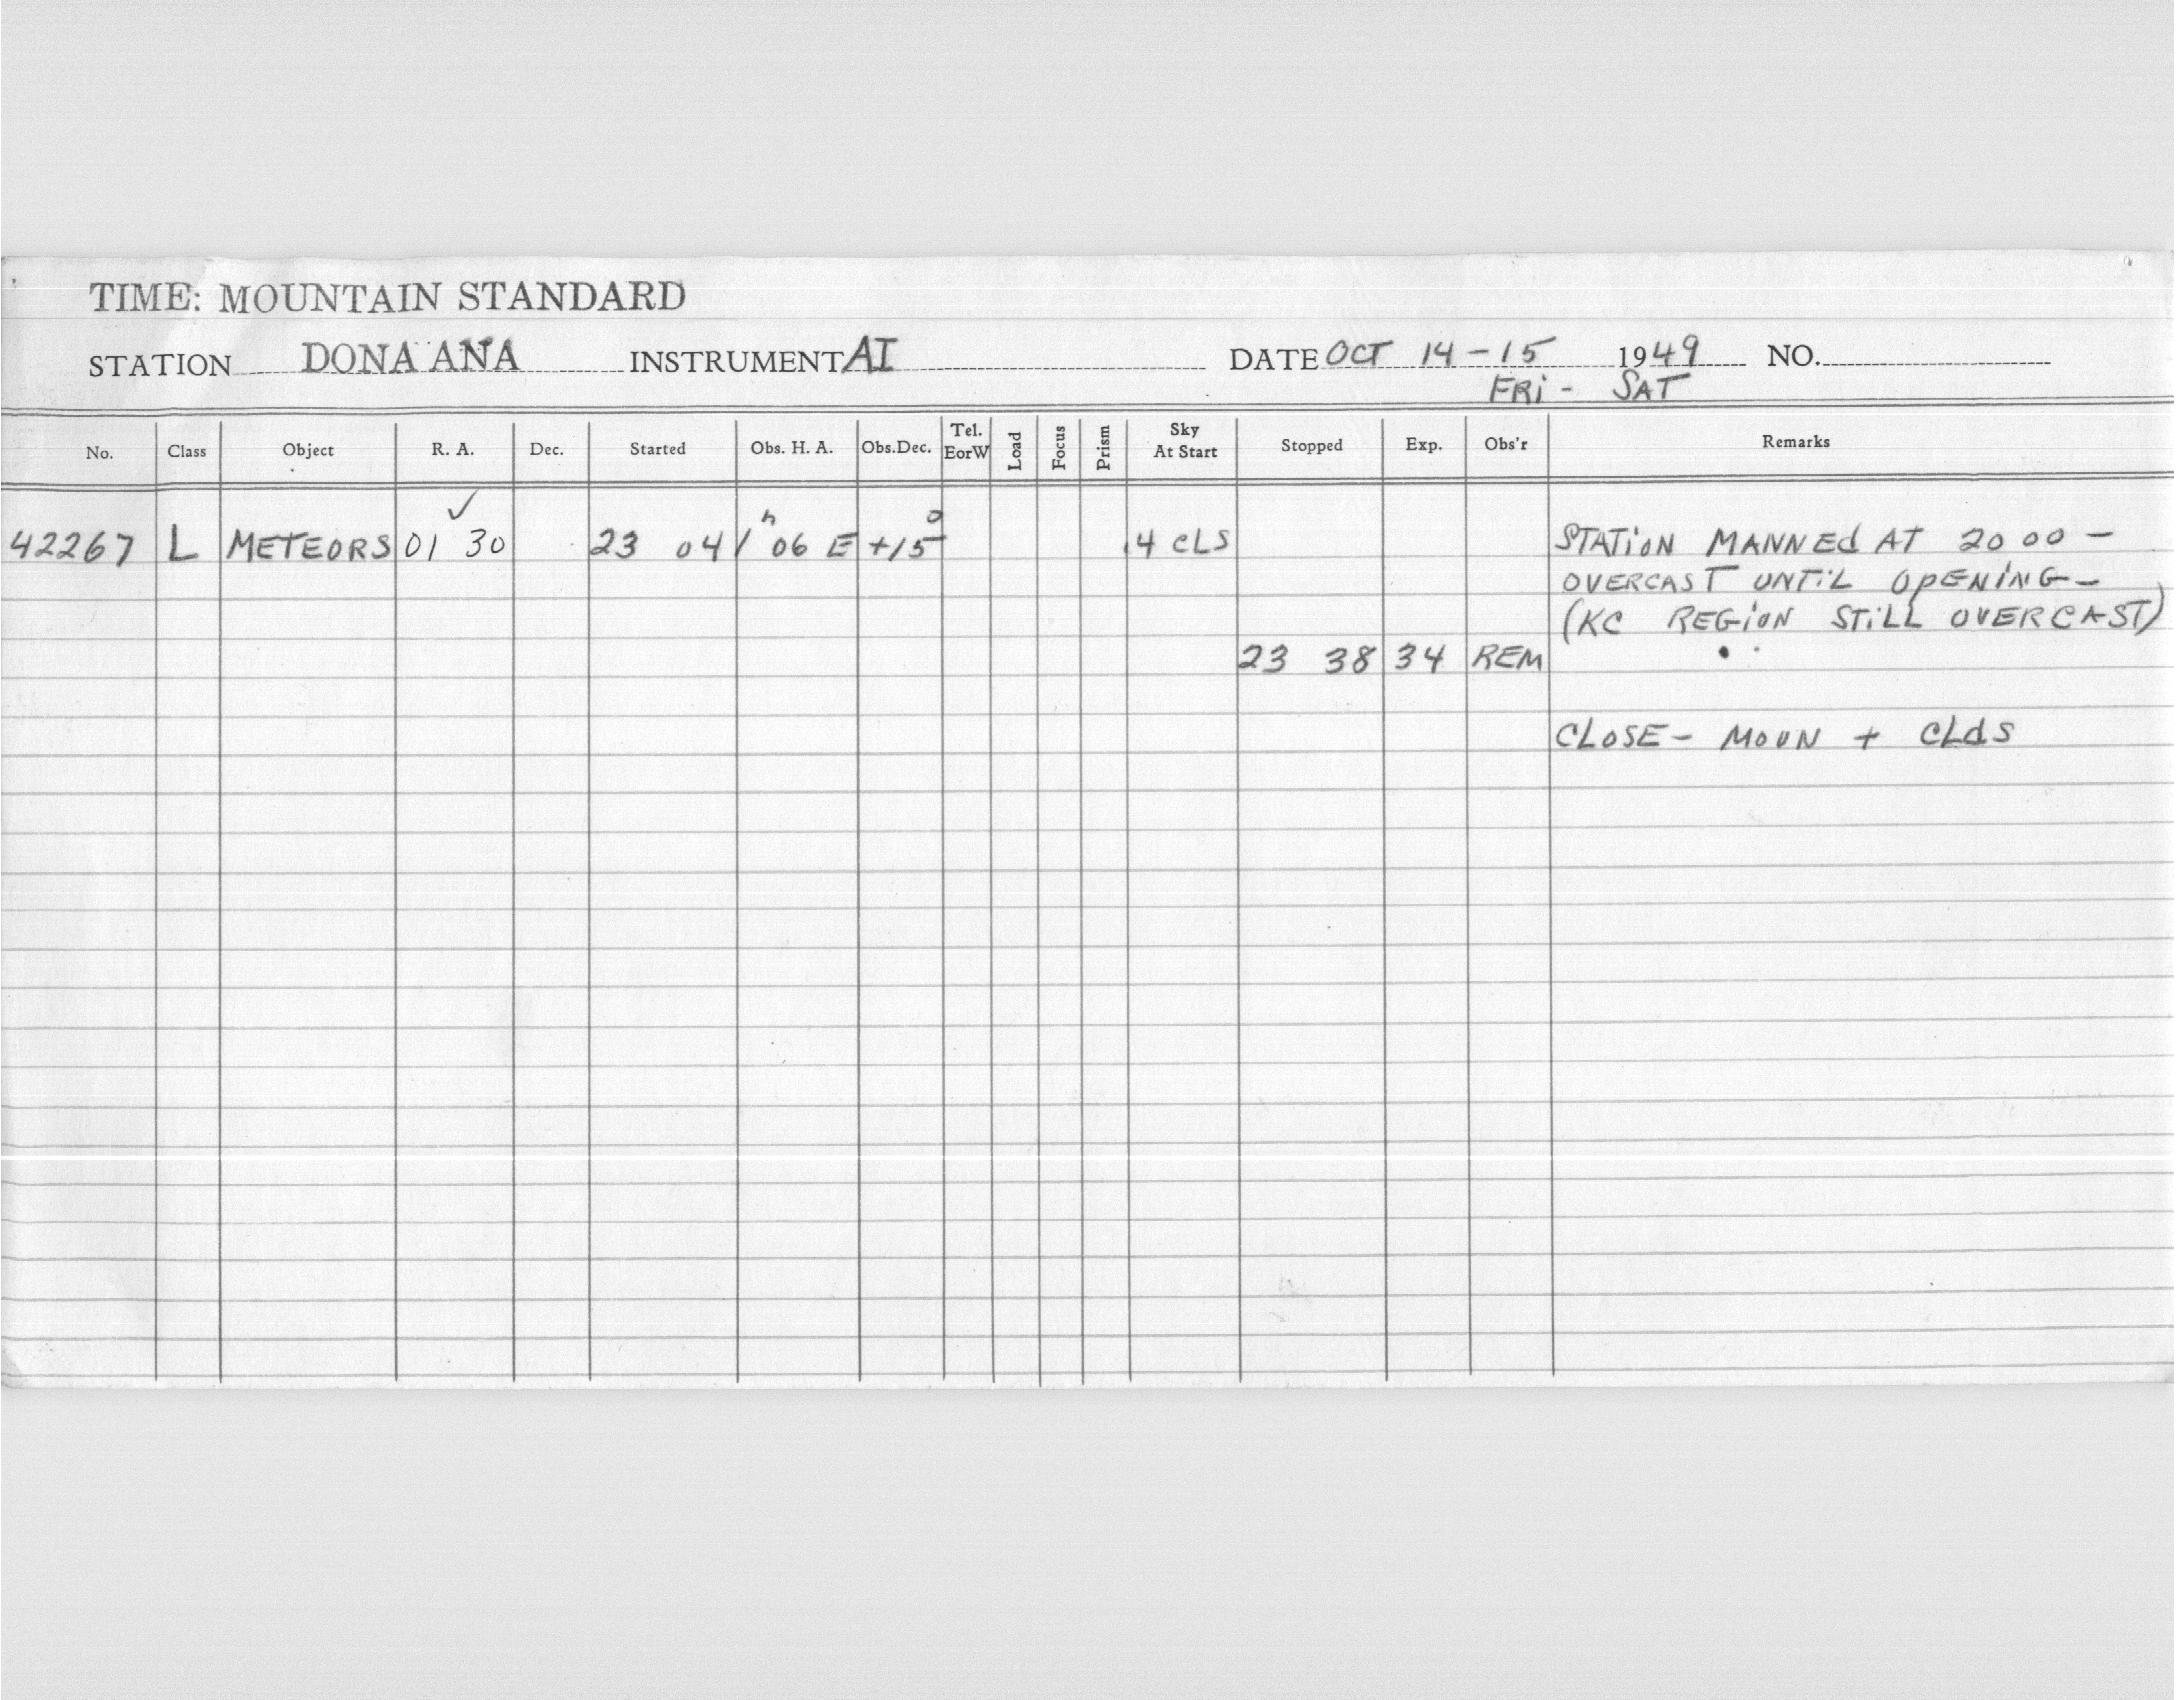 TIME: MOUNTAIN STANDARD
STATION DONA ANA INSTRUMENT AI DATE OCT 14-15 1949 NO.
FRi - SAT
No. Class Object R. A. Dec. Started Obs. H. A. Obs.Dec. Tel. EorW Load Focus Prism Sky At Start Stopped Exp. Obs'r Remarks
42267 L METEORS 01 30 ✓ 23 04 1ʰ 06 E +15° .4 CLS STATiON MANNEd AT 20 00 -
OVERCAST UNTiL OPENiNG -
(KC REGiON STiLL OVERCAST)
23 38 34 REM
CLOSE - MOUN + CLdS